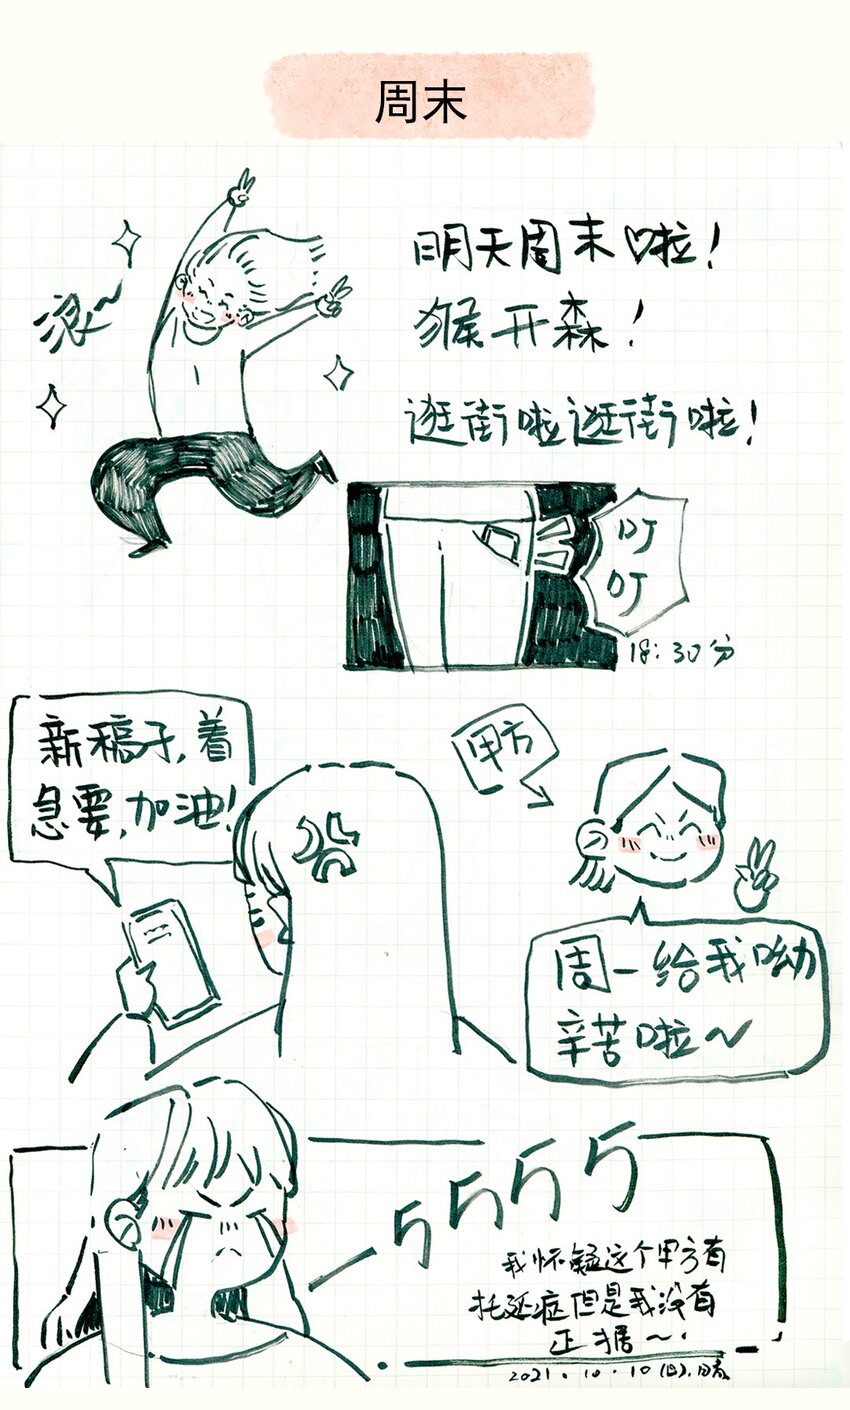 周末
浪~
明天周末啦!
猴开森!
逛街啦逛街啦!
叮
叮
18:30分
新稿子,着
急要,加油!
甲方
周一给我呦
辛苦啦~
5555
我怀疑这个甲方有
拖延症但是我没有
证据~.
2021.10.10(日).晴